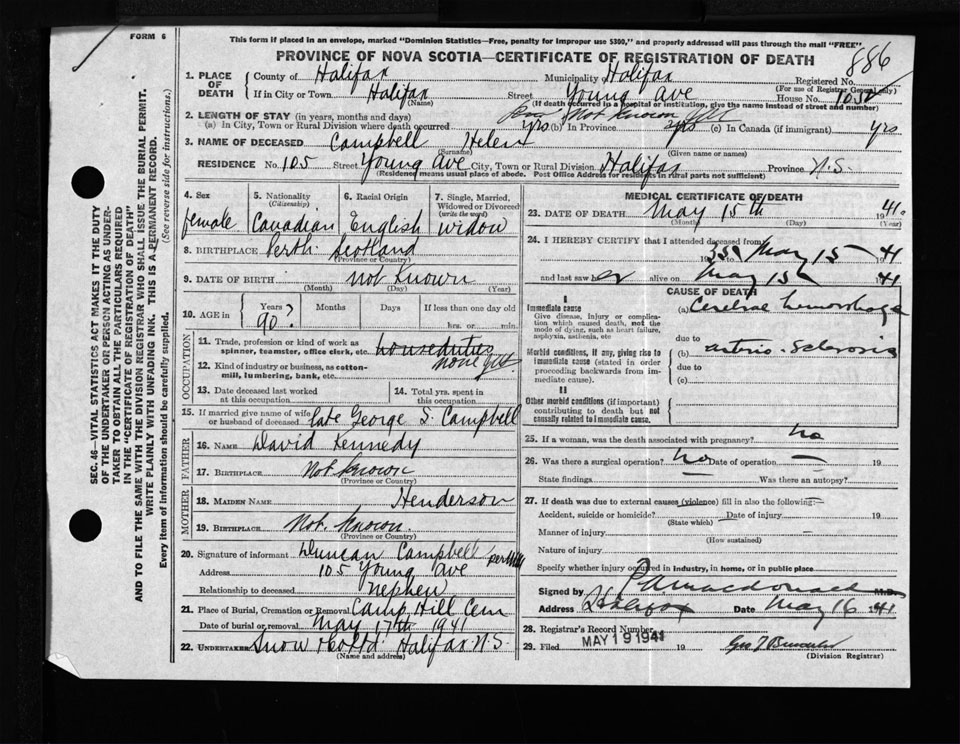 FORM 6
This form if placed in an envelope, marked "Dominion Statistics—Free, penalty for improper use $300," and properly addressed will pass through the mail "FREE".
PROVINCE OF NOVA SCOTIA—CERTIFICATE OF REGISTRATION OF DEATH
886
1. PLACE OF DEATH
County of Halifax Municipality Halifax Registered No.
(For use of Registrar General only)
If in City or Town Halifax Street Young Ave House No. 105
(Name) (If death occurred in a hospital or institution, give the name instead of street and number)
2. LENGTH OF STAY (in years, months and days)
(a) In City, Town or Rural Division where death occurred yrs (b) In Province Not known yrs (c) In Canada (if immigrant) yrs
3. NAME OF DECEASED Campbell Helen
(Surname) (Given name or names)
RESIDENCE No. 105 Street Young Ave City, Town or Rural Division Halifax Province N.S
(Residence means usual place of abode. Post Office Address for residents in rural parts not sufficient)
4. Sex female
5. Nationality (Citizenship) Canadian
6. Racial Origin English
7. Single, Married, Widowed or Divorced (write the word) Widow
8. BIRTHPLACE Perth Scotland
(Province or Country)
9. DATE OF BIRTH not known
(Month) (Day) (Year)
10. AGE in Years 90? Months Days If less than one day
hrs. or min.
OCCUPATION
11. Trade, profession or kind of work as spinner, teamster, office clerk, etc. houseduties
12. Kind of industry or business, as cotton-mill, lumbering, bank, etc. none
13. Date deceased last worked at this occupation
14. Total yrs. spent in this occupation
15. If married give name of wife or husband of deceased late George S. Campbell
FATHER
16. NAME David Kennedy
17. BIRTHPLACE Not known
(Province or Country)
MOTHER
18. MAIDEN NAME Henderson
19. BIRTHPLACE Not. known.
(Province or Country)
20. Signature of informant Duncan Campbell per
Address 105 Young Ave
Relationship to deceased nephew
21. Place of Burial, Cremation or Removal Camp Hill Cem
Date of burial or removal May 17th 1941
22. UNDERTAKER Snow & Co Ltd Halifax N.S.
(Name and address)
MEDICAL CERTIFICATE OF DEATH
23. DATE OF DEATH May 15th 1941
(Month) (Day) (Year)
24. I HEREBY CERTIFY that I attended deceased from
1935 May 15 1941
and last saw her alive on May 15 1941
CAUSE OF DEATH
I
Immediate cause
Give disease, injury or complication which caused death, not the mode of dying, such as heart failure, asphyxia, asthenia, etc
(a)
hemorrhage
due to
Morbid conditions, if any, giving rise to immediate cause (stated in order proceeding backwards from immediate cause).
(b) arterio-sclerosis
due to
(c)
II
Other morbid conditions (if important) contributing to death but not causally related to immediate cause.
25. If a woman, was the death associated with pregnancy? no
26. Was there a surgical operation? no Date of operation — 19
State findings Was there an autopsy?
27. If death was due to external causes (violence) fill in also the following:—
Accident, suicide or homicide? Date of injury 19
(State which)
Manner of injury
(How sustained)
Nature of injury
Specify whether injury occurred in industry, in home, or in public place
Signed by Macdonald M.D.
Address Halifax Date May 16 1941
28. Registrar's Record Number
29. Filed MAY 19 1941 19
(Division Registrar)
SEC. 46—VITAL STATISTICS ACT MAKES IT THE DUTY
OF THE UNDERTAKER OR PERSON ACTING AS UNDER-
TAKER TO OBTAIN ALL THE PARTICULARS REQUIRED
IN THE "CERTIFICATE OF REGISTRATION OF DEATH"
AND TO FILE THE SAME WITH THE DIVISION REGISTRAR WHO SHALL ISSUE THE BURIAL PERMIT.
WRITE PLAINLY WITH UNFADING INK. THIS IS A PERMANENT RECORD.
Every item of information should be carefully supplied. (See reverse side for instructions.)